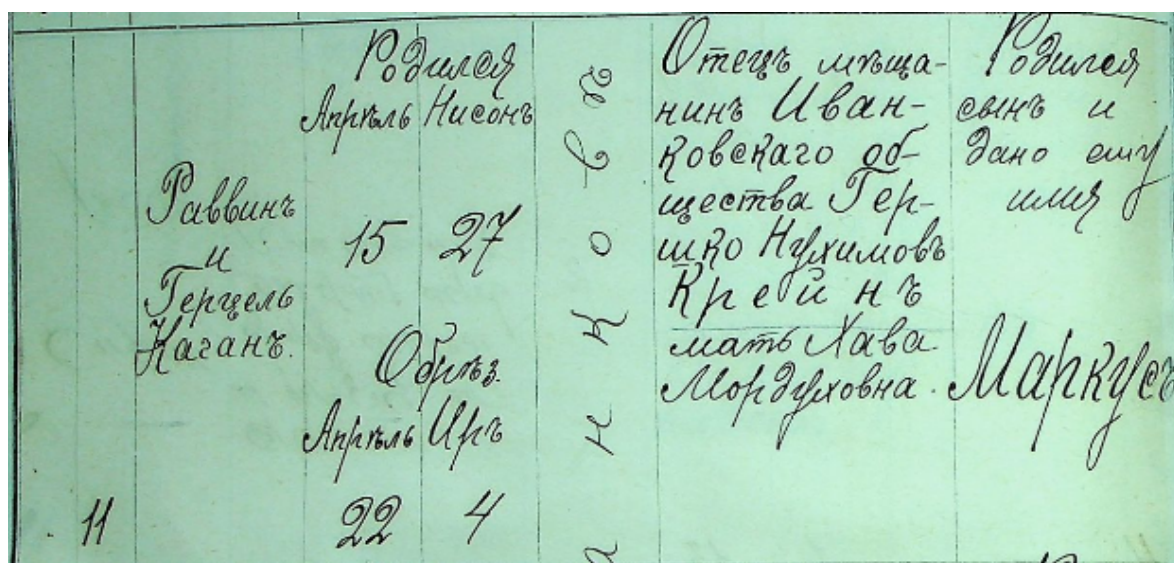 11
Раввинъ
и
Герцель
Каганъ.
Родился
Апрѣль Нисонъ
15 27
Обрѣз.
Апрѣль Иръ
22 4
а н к о в ъ
Отецъ мѣща-
нинъ Иван-
ковскаго об-
щества Гер-
шко Нухимовъ
Крейнъ
мать Хава
Мордуховна.
Родился
сынъ и
дано ему
имя
Маркусъ